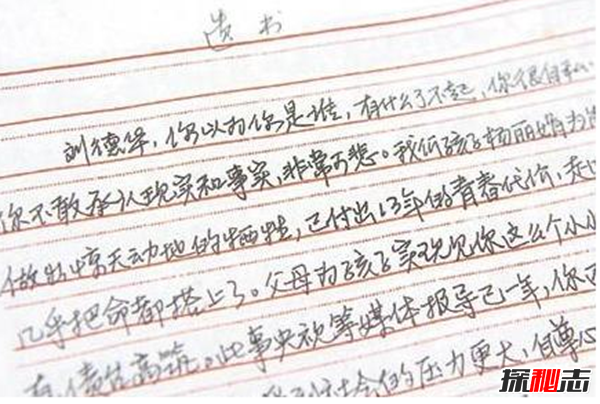 遗书
刘德华,你以为你是谁,有什么了不起,你很自私
你不敢承认现实和事实,非常可悲。我低孩子杨丽娟为
做出惊天动地的牺牲,已付出13年的青春代价,走
几乎把命都搭上了。父母为孩子实现见你这么个小小
债台高筑。此事央视等媒体报导已一年,你
的压力更大,自尊心
探秘志